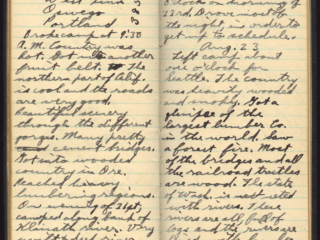 West Linn
Oswego
Portland
333
Broke camp at 9:30
A.M. Country was
hot. Got in another
fruit belt. The
northern part of Alif.
is cool and the roads
are very good.
Beautiful scenery
through the different
ranges. Many pretty
cement bridges.
Got into wooded
country in Ore.
Reached heavy
lumbering regions.
On evening of 21st,
camped along bank of
Klamath river. Very
o'clock on morning of
23rd. Drove most of
the night in order to
get up to schedule.
Aug. 23
Left camp about
o'clock for
Seattle. The Country
was heavily wooded
and smoky. Got a
glimpse of the
largest lumber Co.
in the world. Saw
a forest fire. Most
of the bridges and all
the railroad trutles
are wood. The state
of Wash. is
with rivers. These
rivers are all full of
logs and the rivers are